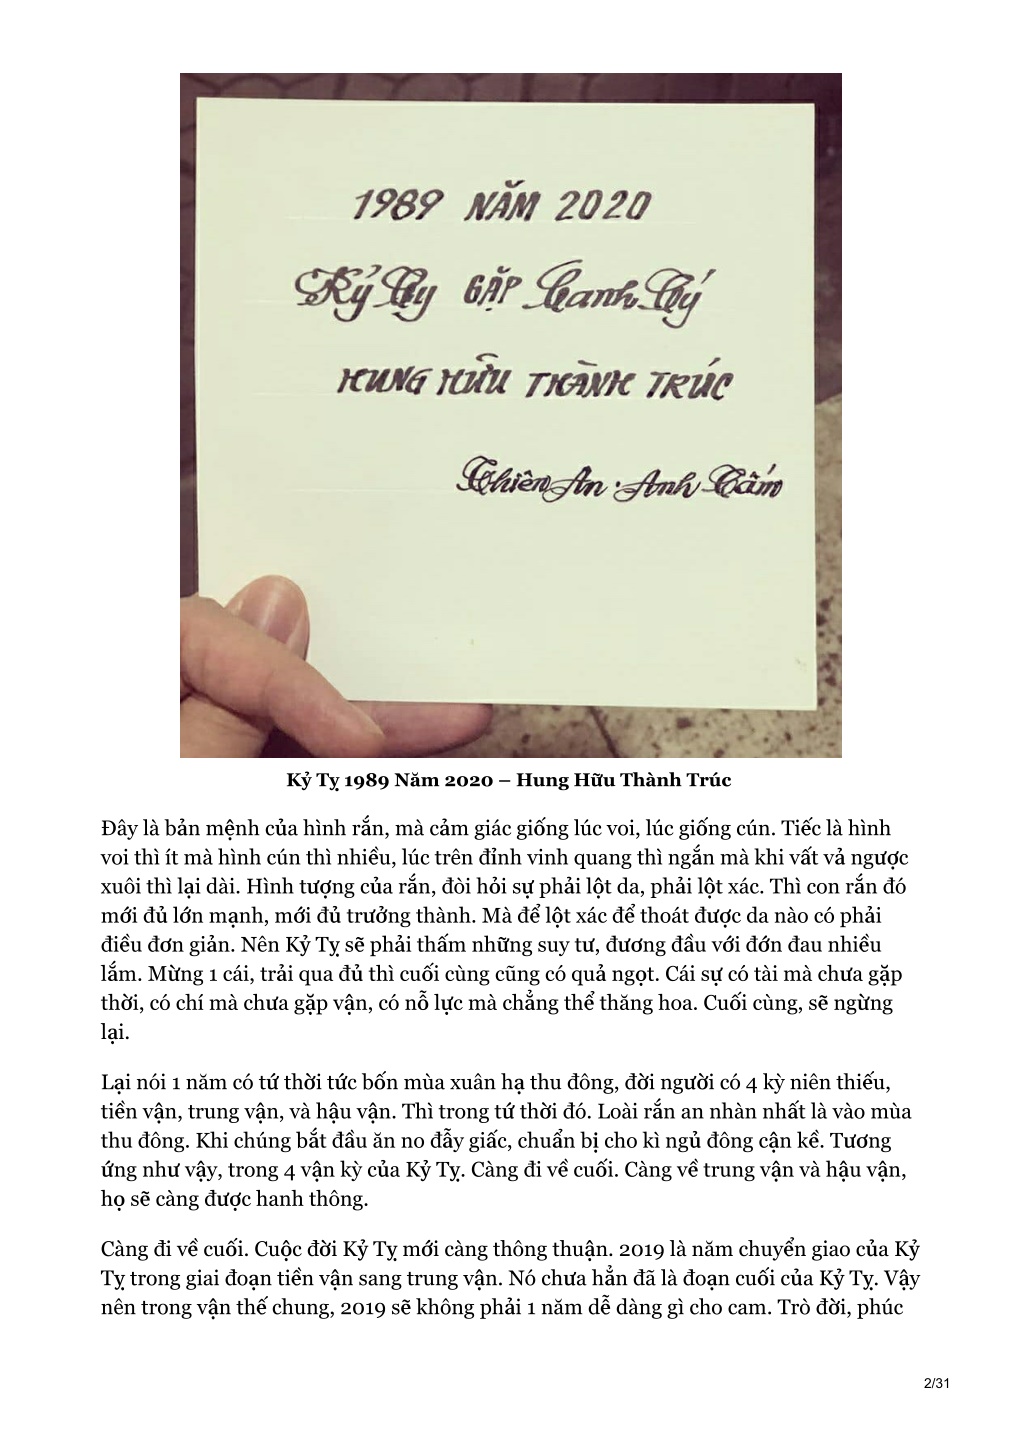 1989 NĂM 2020
Kỷ Tỵ GẶP Canh Tý
HUNG HỮU THÀNH TRÚC
Thiên An · Anh Tấm
Kỷ Tỵ 1989 Năm 2020 – Hung Hữu Thành Trúc
Đây là bản mệnh của hình rắn, mà cảm giác giống lúc voi, lúc giống cún. Tiếc là hình
voi thì ít mà hình cún thì nhiều, lúc trên đỉnh vinh quang thì ngắn mà khi vất vả ngược
xuôi thì lại dài. Hình tượng của rắn, đòi hỏi sự phải lột da, phải lột xác. Thì con rắn đó
mới đủ lớn mạnh, mới đủ trưởng thành. Mà để lột xác để thoát được da nào có phải
điều đơn giản. Nên Kỷ Tỵ sẽ phải thấm những suy tư, đương đầu với đớn đau nhiều
lắm. Mừng 1 cái, trải qua đủ thì cuối cùng cũng có quả ngọt. Cái sự có tài mà chưa gặp
thời, có chí mà chưa gặp vận, có nỗ lực mà chẳng thể thăng hoa. Cuối cùng, sẽ ngừng
lại.
Lại nói 1 năm có tứ thời tức bốn mùa xuân hạ thu đông, đời người có 4 kỳ niên thiếu,
tiền vận, trung vận, và hậu vận. Thì trong tứ thời đó. Loài rắn an nhàn nhất là vào mùa
thu đông. Khi chúng bắt đầu ăn no đẫy giấc, chuẩn bị cho kì ngủ đông cận kề. Tương
ứng như vậy, trong 4 vận kỳ của Kỷ Tỵ. Càng đi về cuối. Càng về trung vận và hậu vận,
họ sẽ càng được hanh thông.
Càng đi về cuối. Cuộc đời Kỷ Tỵ mới càng thông thuận. 2019 là năm chuyển giao của Kỷ
Tỵ trong giai đoạn tiền vận sang trung vận. Nó chưa hẳn đã là đoạn cuối của Kỷ Tỵ. Vậy
nên trong vận thế chung, 2019 sẽ không phải 1 năm dễ dàng gì cho cam. Trò đời, phúc
2/31